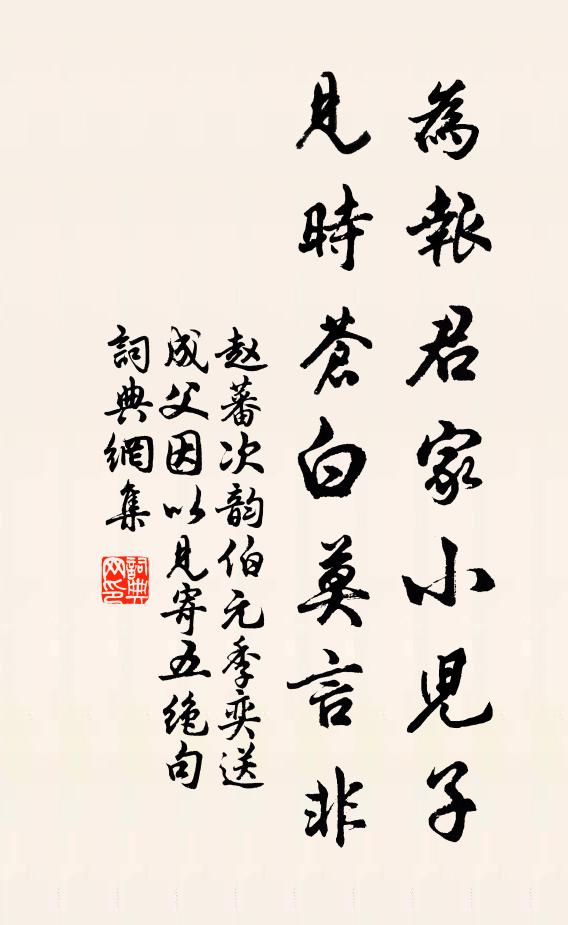 為報君家小児子
見時蒼白莫言非
赵蕃次韵伯元季奕送
成父因以見寄五絶句
詞典網集
詞典网印